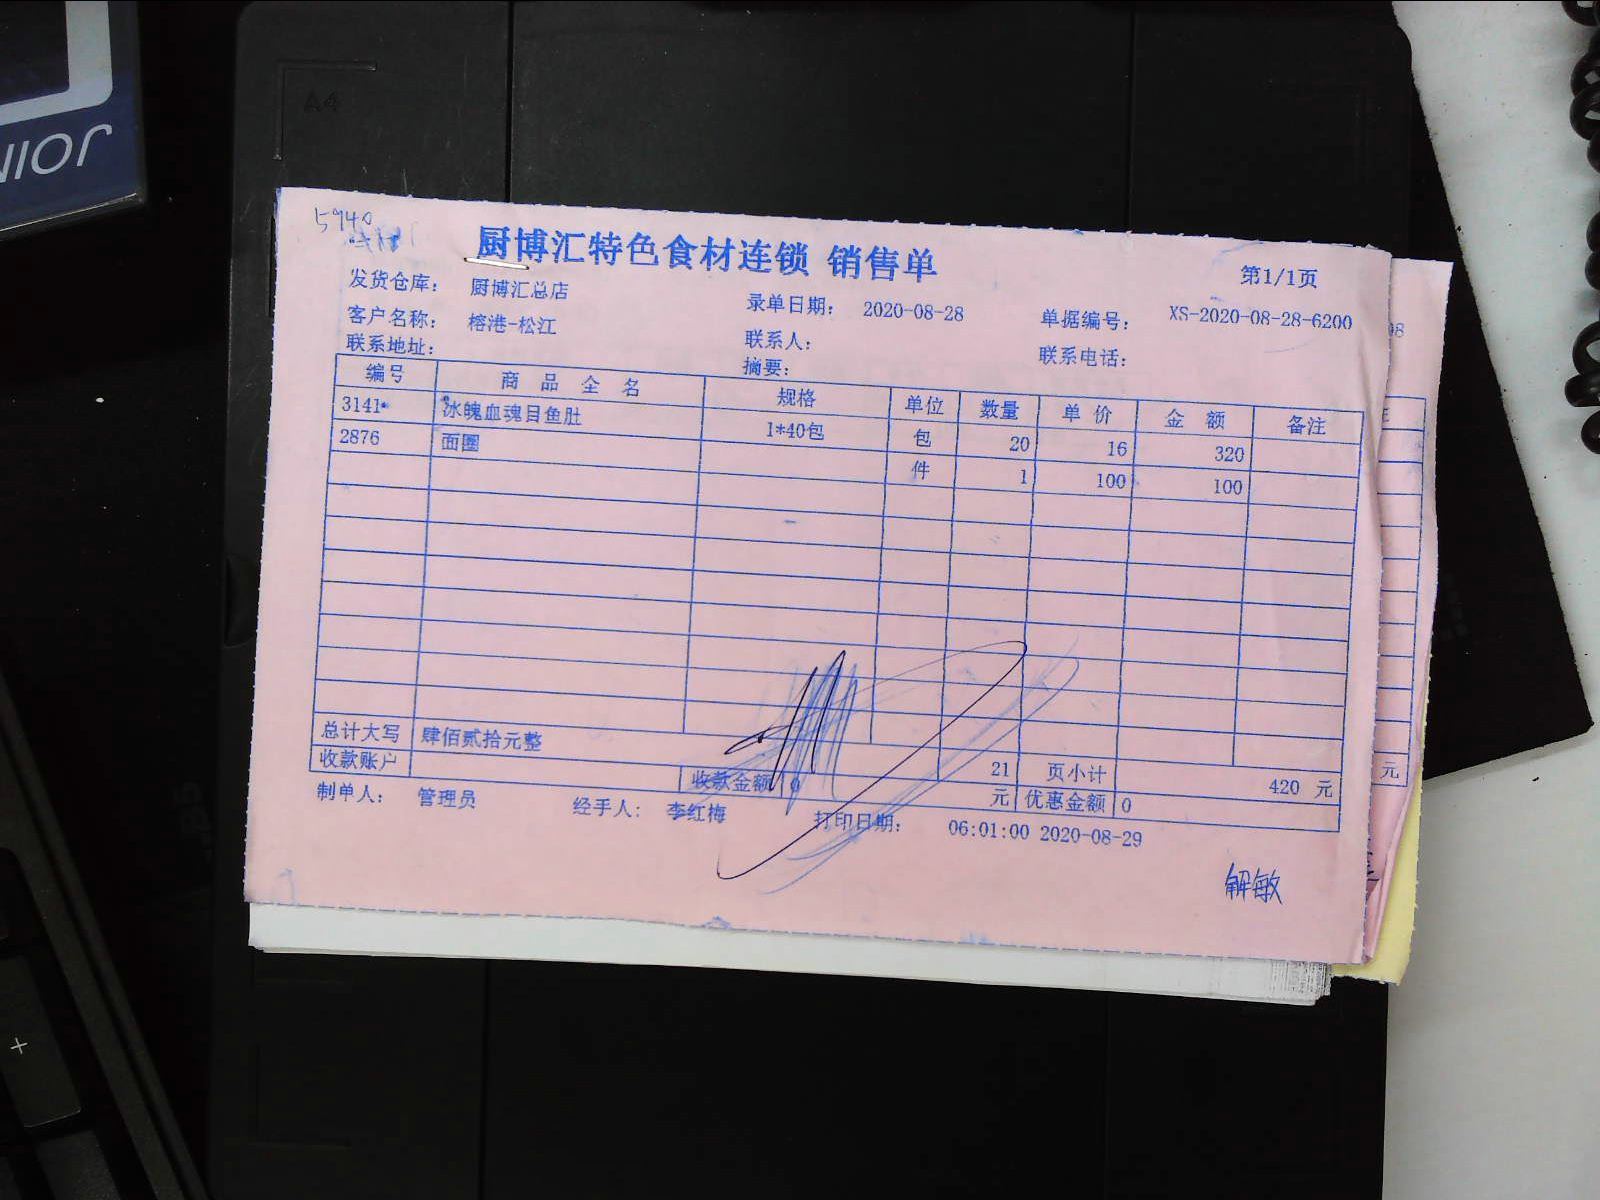 5940
厨博汇特色食材连锁 销售单
第1/1页
发货仓库: 厨博汇总店 录单日期: 2020-08-28 单据编号: XS-2020-08-28-6200
客户名称: 榕港-松江 联系人: 联系电话:
联系地址: 摘要:
编号 商品全名 规格 单位 数量 单价 金额 备注
3141* 冰魄血魂目鱼肚 1*40包 包 20 16 320
2876 面圈 件 1 100 100
总计大写 肆佰贰拾元整 21 页小计 420 元
收款账户 收款金额 0 元 优惠金额 0
制单人: 管理员 经手人: 李红梅 打印日期: 06:01:00 2020-08-29
解敏
元
A4
JOIN
+